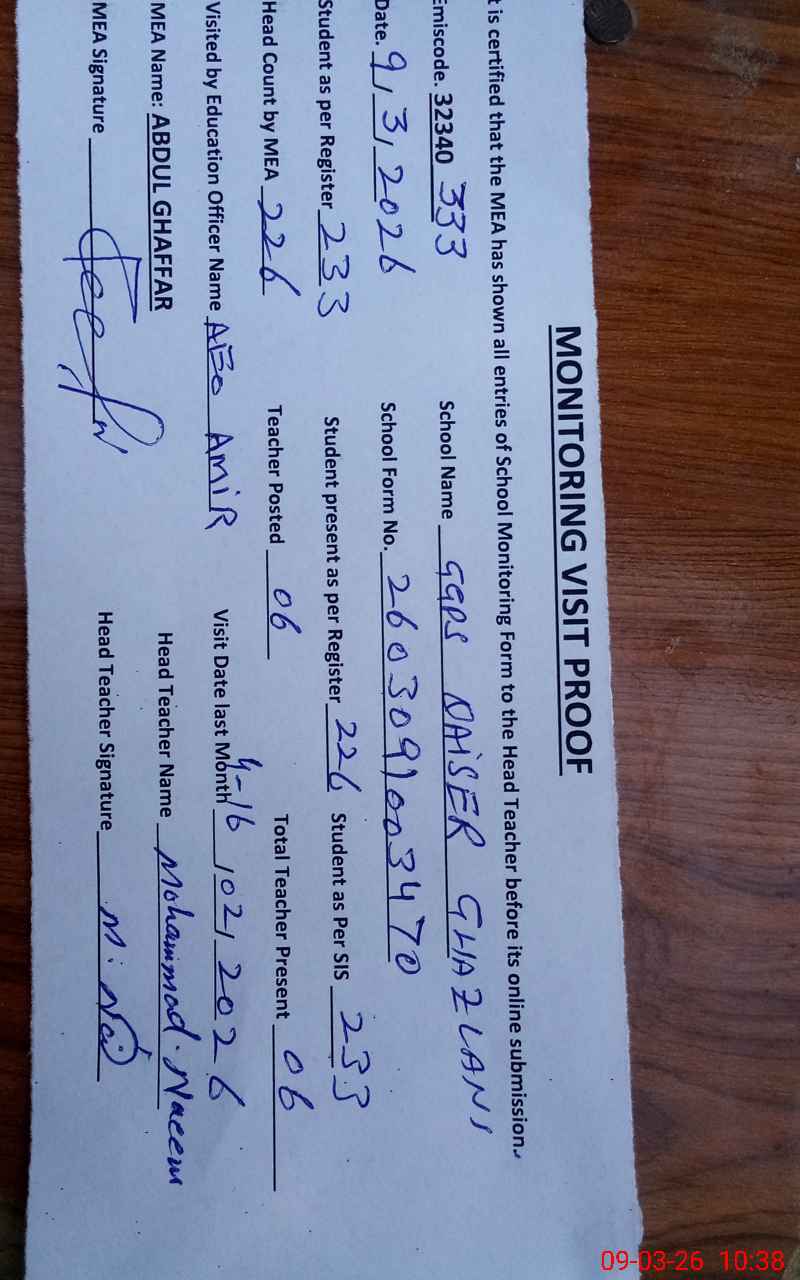 MONITORING VISIT PROOF
t is certified that the MEA has shown all entries of School Monitoring Form to the Head Teacher before its online submission.
Emiscode. 32340 333 School Name GGPS QAISER GHAZLANI
Date. 9, 3, 2026 School Form No. 2603091003470
Student as per Register 233 Student present as per Register 226 Student as Per SIS 233
Head Count by MEA 226 Teacher Posted 06 Total Teacher Present 06
Visited by Education Officer Name AEO AMIR Visit Date last Month 4-16 /02/ 2026
MEA Name: ABDUL GHAFFAR Head Teacher Name Mohammad. Naeem
MEA Signature Head Teacher Signature
09-03-26 10:38